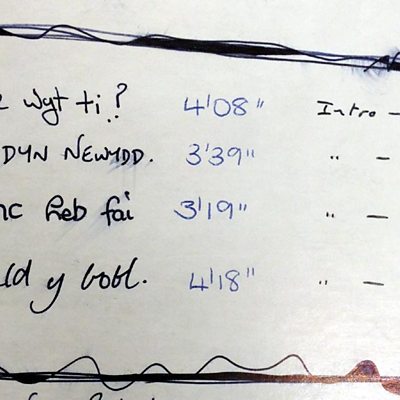 Wyt ti? 4'08" Intro –
DYN NEWYDD. 3'39" " –
heb fai 3'19" " –
y bobl. 4'18" " –